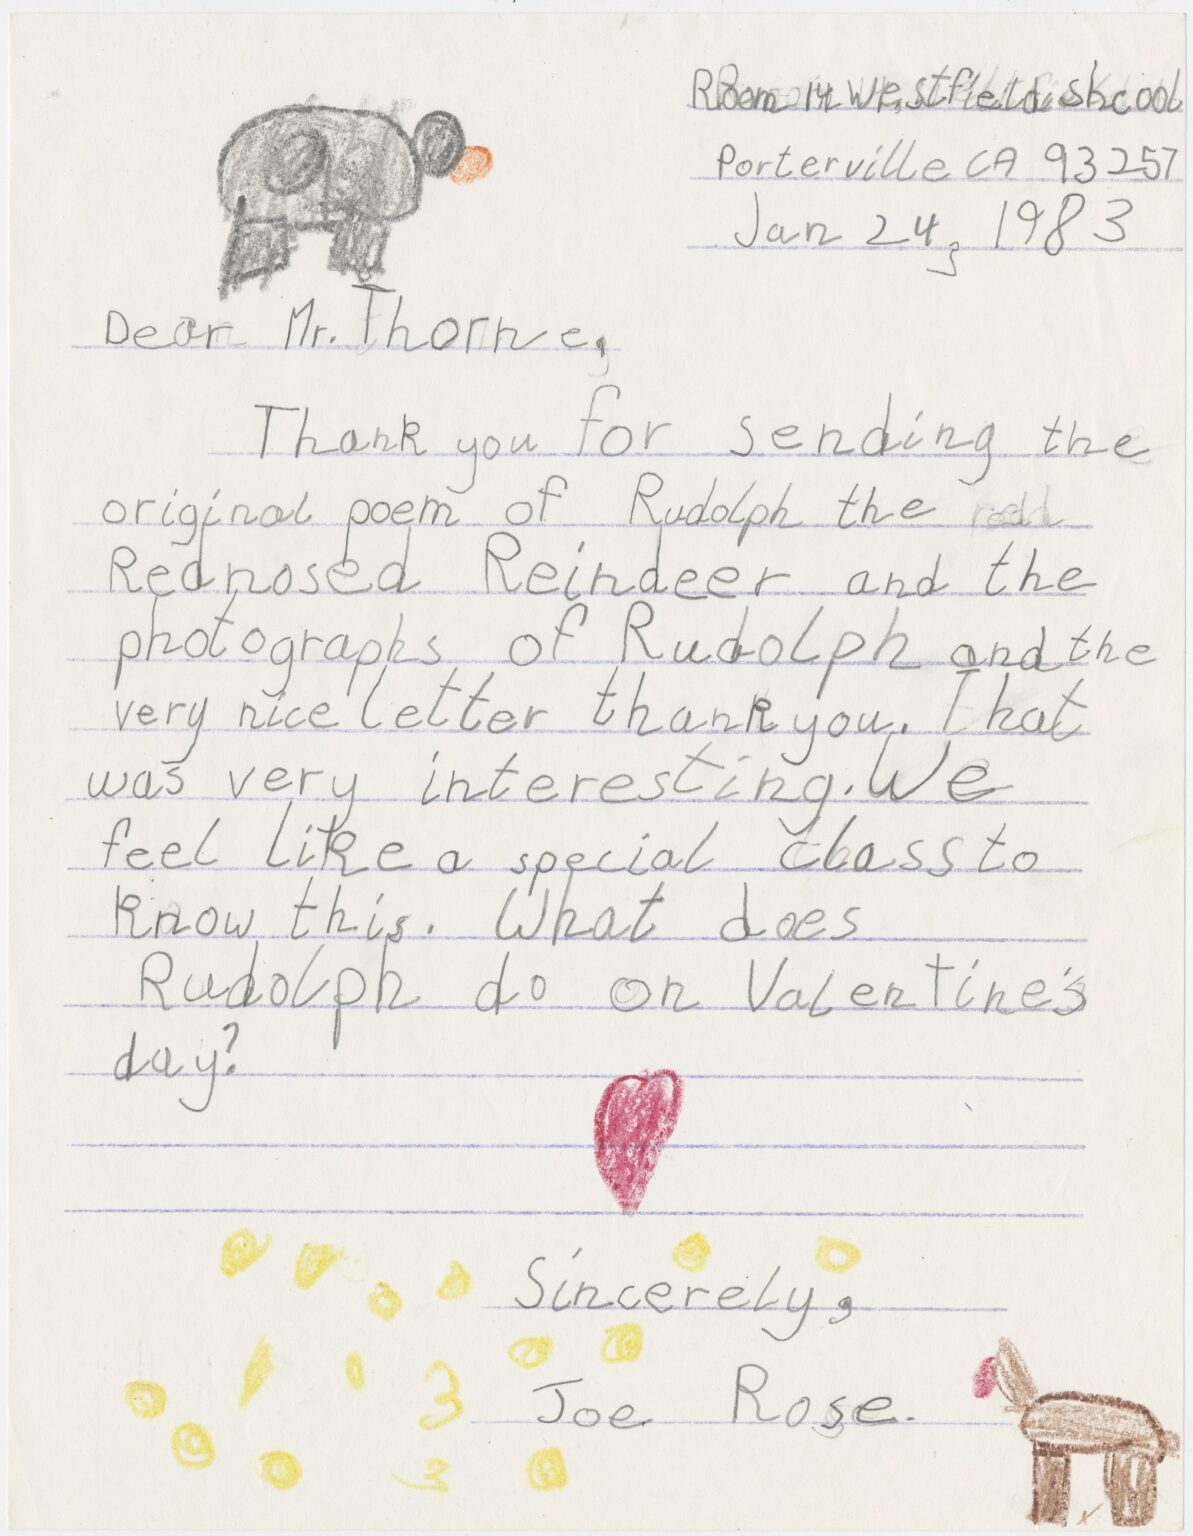 Room 14 Westfield shcool
Porterville CA 93257
Jan 24, 1983
Dear Mr. Thorne,
Thank you for sending the
original poem of Rudolph the
Rednosed Reindeer and the
photographs of Rudolph and the
very nice letter thank you. That
was very interesting. We
feel like a special class to
know this. What does
Rudolph do on Valentine's
day?
Sincerely,
Joe Rose.